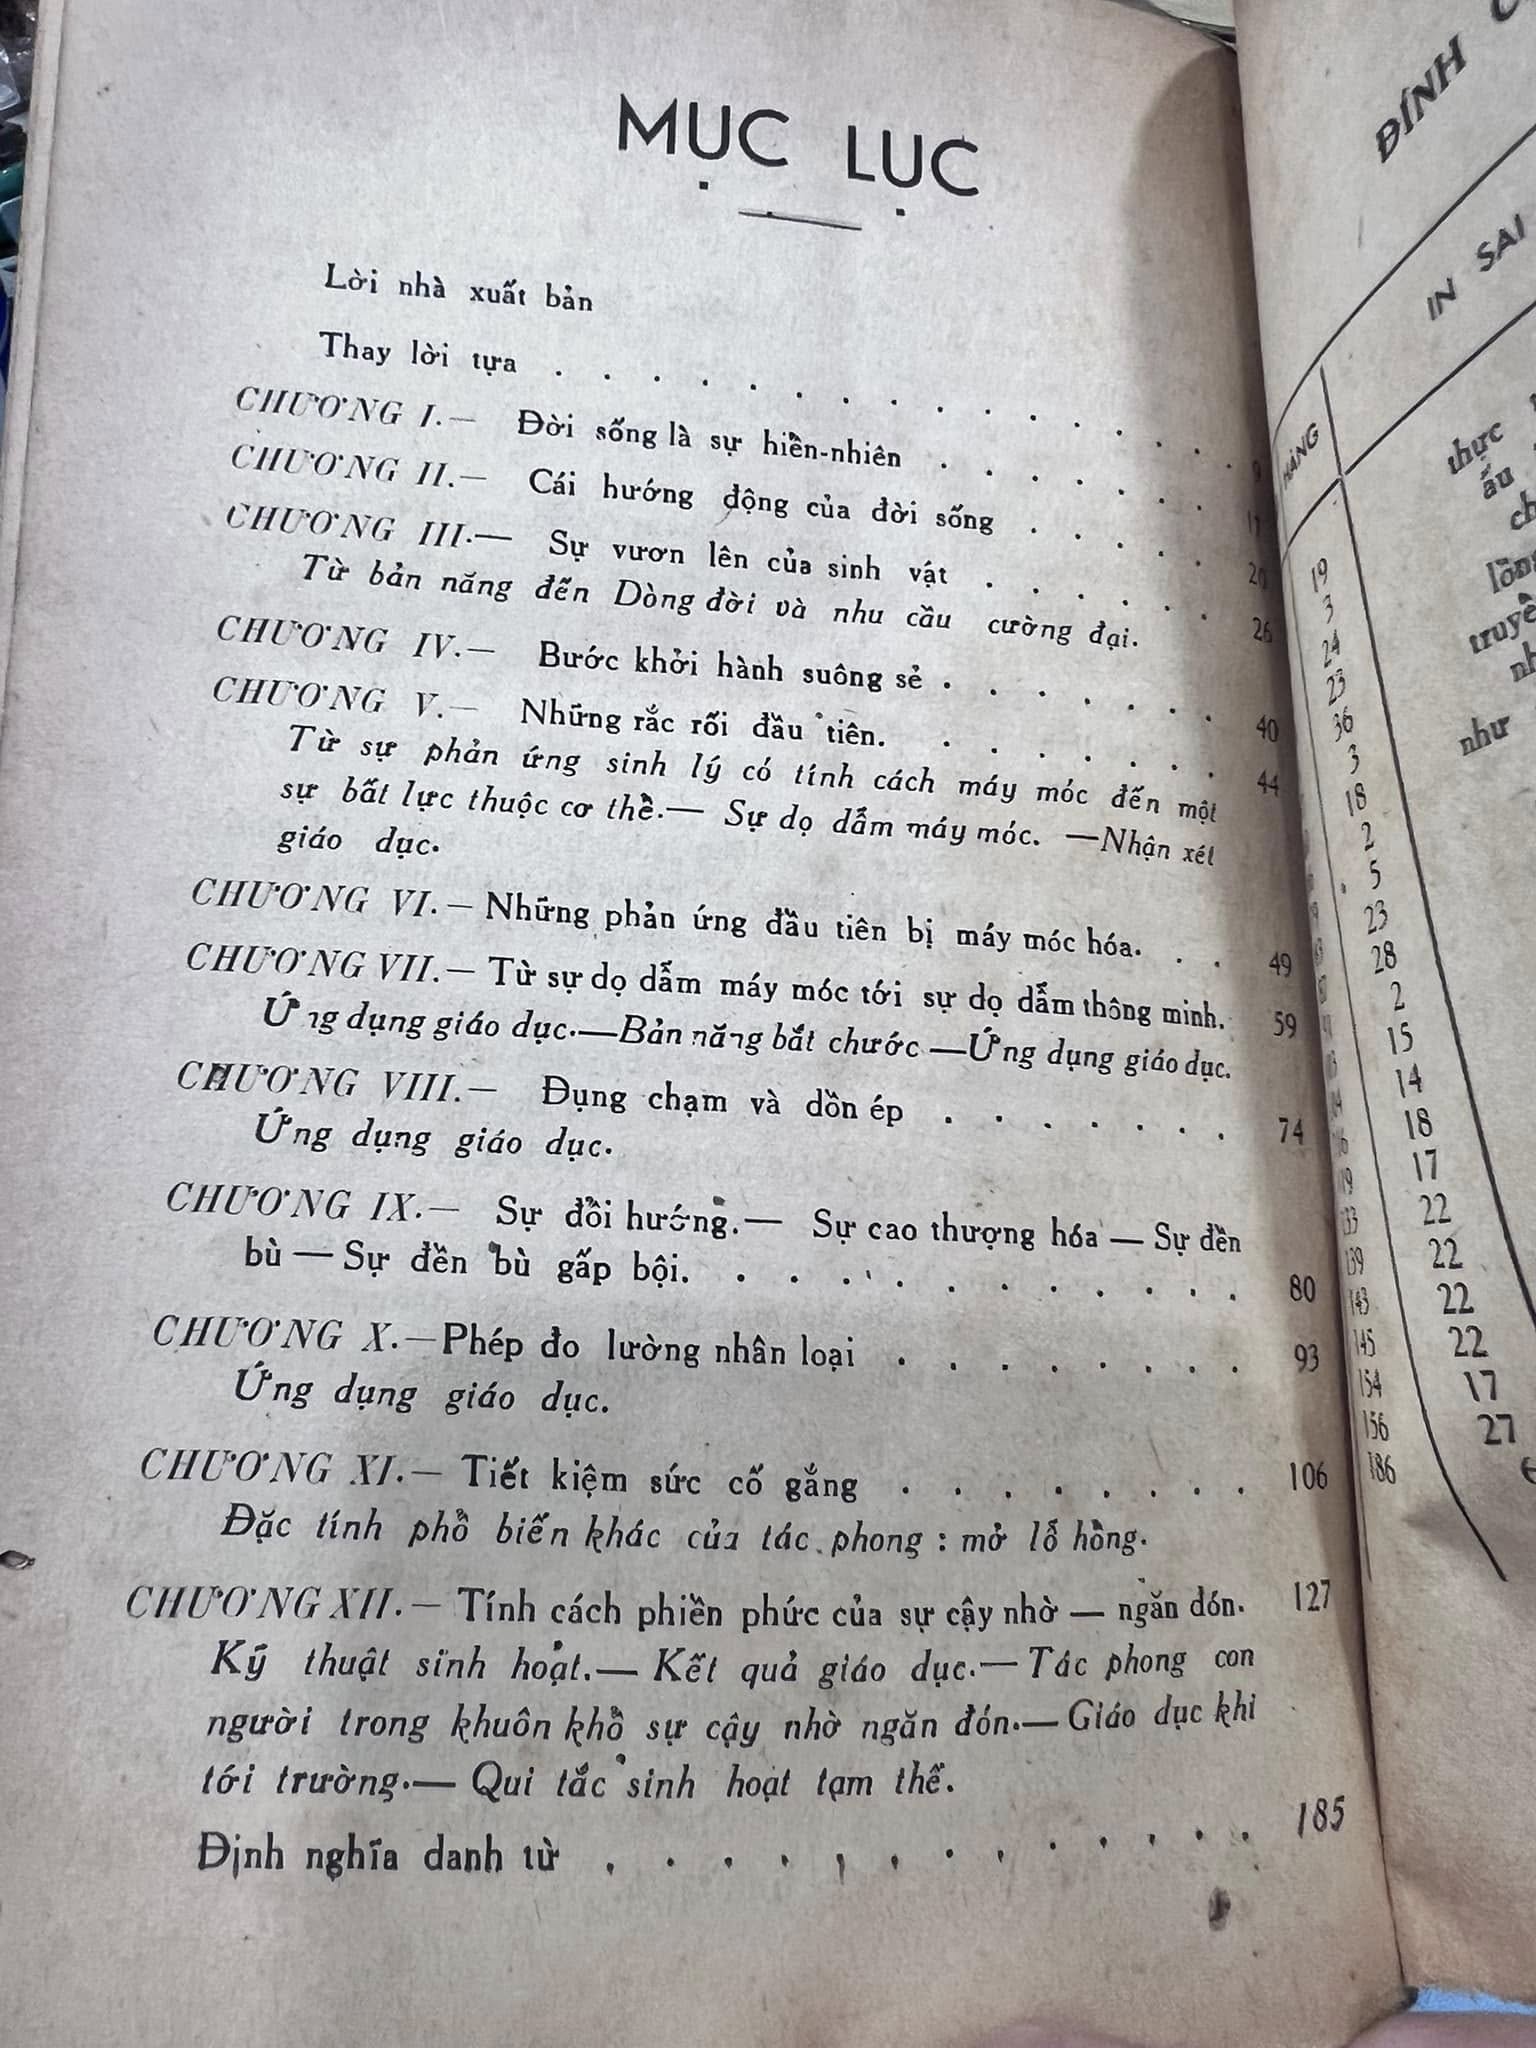 MỤC LỤC
Lời nhà xuất bản
Thay lời tựa . . . . . . . . . . . . . . 9
CHƯƠNG I.— Đời sống là sự hiền-nhiên . . . . . . . 17
CHƯƠNG II.— Cái hướng động của đời sống . . . . . 20
CHƯƠNG III.— Sự vươn lên của sinh vật . . . . . . 26
Từ bản năng đến Dòng đời và nhu cầu cường đại.
CHƯƠNG IV.— Bước khởi hành suông sẻ . . . . . . . 40
CHƯƠNG V.— Những rắc rối đầu tiên. . . . . . . 44
Từ sự phản ứng sinh lý có tính cách máy móc đến một
sự bất lực thuộc cơ thề.— Sự dọ dẫm máy móc. —Nhận xét
giáo dục.
CHƯƠNG VI.— Những phản ứng đầu tiên bị máy móc hóa. . . 49
CHƯƠNG VII.— Từ sự dọ dẫm máy móc tới sự dọ dẫm thông minh. 59
Ứng dụng giáo dục.—Bản năng bắt chước —Ứng dụng giáo dục.
CHƯƠNG VIII.— Đụng chạm và dồn ép . . . . . . . 74
Ứng dụng giáo dục.
CHƯƠNG IX.— Sự đồi hướng.— Sự cao thượng hóa — Sự đền
bù — Sự đền bù gấp bội. . . . . . . . . . . 80
CHƯƠNG X.—Phép đo lường nhân loại . . . . . . . . 93
Ứng dụng giáo dục.
CHƯƠNG XI.— Tiết kiệm sức cố gắng . . . . . . . . 106
Đặc tính phồ biến khác của tác phong : mở lỗ hồng.
CHƯƠNG XII.— Tính cách phiền phức của sự cậy nhờ — ngăn đón. 127
Kỹ thuật sinh hoạt.— Kết quả giáo dục.— Tác phong con
người trong khuôn khồ sự cậy nhờ ngăn đón.— Giáo dục khi
tới trường.— Qui tắc sinh hoạt tạm thề.
Định nghĩa danh từ . . . . . . . . . . . . 185
ĐÍNH
IN SAI
HÀNG
19
3
24
23
36
3
18
2
5
23
28
2
15
14
18
17
22
139 22
143 22
145 22
154 17
156 27
186
thực
ấu
truyề
như